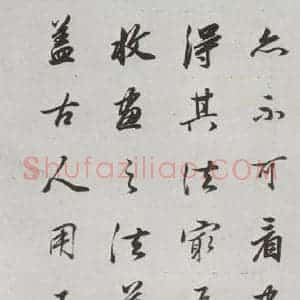 亦不可看
得其法窮
收畫之法
蓋古人用
Shufaziliao.COM